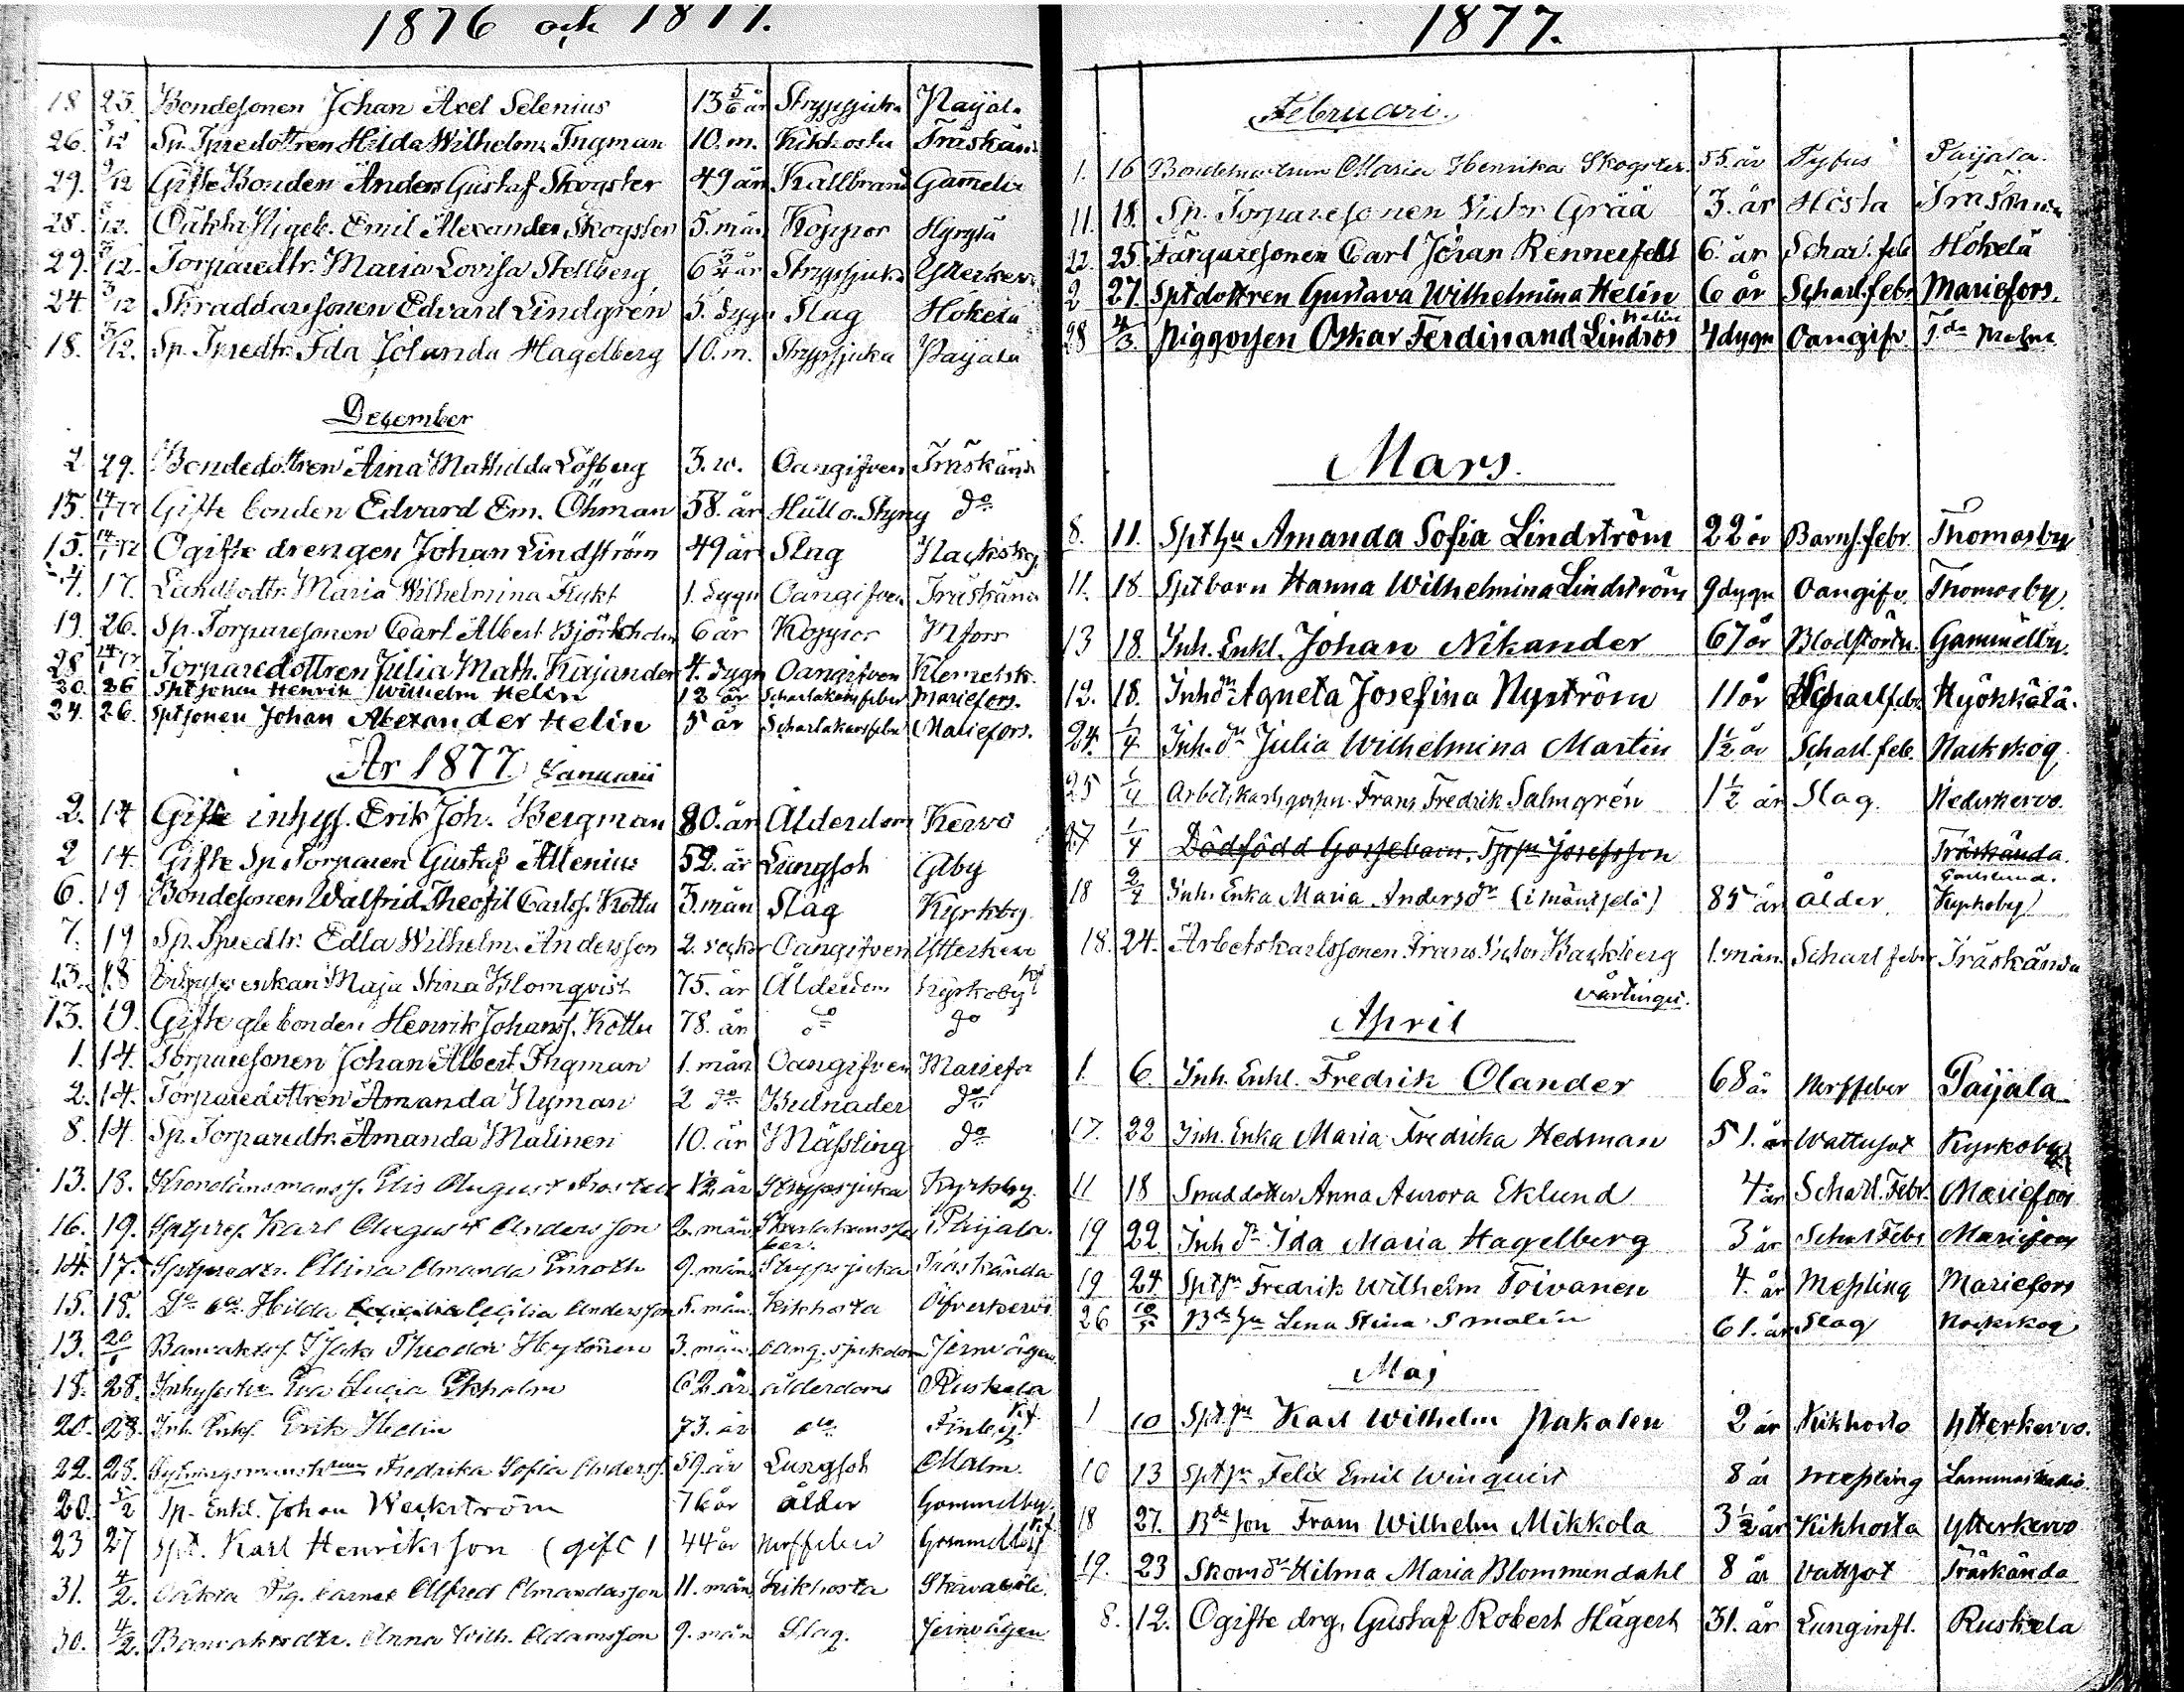 1876 och 1877.
18 23. Bondesonen Johan Axel Selenius 13 5/6 år Strypsjuka Paijala
26. 3/12 Sp. Tpredottren Hilda Wilhelm. Ingman 10. m. Kikhosta Träskända
29. 3/12 Gifte Bonden Anders Gustaf Skogster 49 år Kallbrand Gamelby
28. 3/12. Oäkta Pigeb. Emil Alexander Skogster 5. mån Koppor Hyrylä
29. 3/12. Torparedtr. Maria Lovisa Stellberg 6 3/4 år Strypsjuka Ytterkervo
24. 3/12 Skräddaresonen Edvard Lindgrén 5. dygn Slag Hökelä
18. 3/12. Sp. Tpredtr. Ida Jolanda Hagelberg 10. m. Strypsjuka Paijala
December
2 29. Bondedottren Aina Mathilda Löfberg 3. v. Oangifven Träskända
15. 14/1 77 Gifte bonden Edvard Em. Öhman 58. år Håll o. Styng do
15. 14/1 77 Ogifte drengen Johan Lindström 49 år Slag Nackskog
4. 17. Landbodtr. Maria Wilhelmina Flykt 1. dygn Oangifven Träskända
19. 26. Sp. Torparesonen Carl Albert Björkholm 6 år Koppor Mfors
28 14/1 77 Torparedottren Julia Math. Kajander 4. dygn Oangifven Klemetsk.
20. 26 Sptsonen Henrik Wilhelm Helin 12 år Scharlakansfeber Mariefors.
24. 26. Sptsonen Johan Alexander Helin 5 år Scharlakansfebr Mariefors.
År 1877 Januarii
2. 14 Gifte inhys. Erik Joh. Bergman 80. år Ålderdom Kervo
2 14. Gifte Sp. Torparen Gustaf Allenius 52. år Lungsot Alby
6. 19 Bondesonen Walfrid Theofil Carlss. Kottu 3. mån Slag Kyrkby
7. 19 Sp. Tpredtr. Edla Wilhelm. Andersson 2. veckor Oangifven Ytterkervo
13. 18 Inhyses enkan Maja Stina Blomqvist 75. år Ålderdom Kyrkoby
13. 19. Gifte gle bonden Henrik Johanss. Kottu 78. år do do
1. 14. Torparesonen Johan Albert Ingman 1. mån Oangifven Mariefors
2. 14. Torparedottren Amanda Nyman 2 do Bulnader do
8. 14. Sp. Torparedtr. Amanda Malinen 10. år Mässling do
13. 18. Kronolänsmanss. Elis August 12 år Strypsjuka Kyrkby.
16. 19. Karl August Andersson 2. mån Skarlakansfeber Paijala.
14. 17. Sptpredtr. Olina Amanda Enroth 9. mån Strypsjuka Träskända
15. 18. Do do Hilda Cecilia Andersson 5. mån. Kikhosta Öfverkervo
13. 20/1 Banvaktss. Theodor Heytönen 3. mån. oang. sjukdom Jernvägen
18. 28. Inhyseshu Eva Lucia Ekholm 62 år ålderdom Ruskela
20. 28. Inh. Enkl. Erik Hedin 73. år do Finby
22. 28. Fredrika Sofia Anderss. 59. år Lungsot Malm.
20. 5/2 Sp. Enkl. Johan Weckström 76 år ålder Gammelby.
23 27 Spt. Karl Henriksson (gift) 44 år Nerffeber Gammelby
31. 4/2. Oäkta Pig. barnet Alfred Amandasson 11. mån Kikhosta Skavaböle.
30. 4/2. Banvaktsdtr. Anna Wilh. Adamsson 9. mån Slag. Jernvägen
1877.
Februari.
1. 16 Bondehustrun Maria Henrika Skogster 55. år Tyfus Paijala.
11. 18. Sp. Torparesonen Victor Grää 3. år Hosta Träskända
22. 25 Färgaresonen Carl Johan Rennerfelt 6. år Scharl. feb Hökelä
2 27. Sptdottren Gustava Wilhelmina Helin 6 år Scharl. febr Mariefors.
28 4/3. Piggossen Oskar Ferdinand Lindros Malm 4 dygn Oangifv. Malm
Mars.
8. 11. Spthu Amanda Sofia Lindström 22 år Barns. febr. Thomasby
11. 18 Sptbarn Hanna Wilhelmina Lindström 9 dygn Oangifv. Thomasby.
13 18. Inh. Enkl. Johan Nikander 67 år Blodstörtn. Gammelby.
12. 18. Inhdr Agneta Josefina Nyström 11 år Scharl. febr. Hyökkälä.
24. 1/4 Inh. dr Julia Wilhelmina Martin 1 1/2 år Scharl. feb. Nackskog.
25 1/4 Arbetskarlsgossen Frans Fredrik Salmgrén 1 1/2 år Slag. Nederkervo.
27 1/4 Dödfödd Gossebarn, Josefsson Träskända.
18 2/4 Inh. Enka Maria Andersdr (i Mäntselä) 85 år ålder Kyrkoby
18. 24. Arbetskarlssonen Frans Victor Backberg 1. mån. Scharl feber Träskända
Vårtingei.
April
1. 6. Inh. Enkl. Fredrik Olander 68 år Nerffeber Paijala
17. 22 Inh. Enka Maria Fredrika Hedman 51. år Wattusot Kyrkoby
11 18 Smeddotter Anna Aurora Eklund 4 år Scharl. Febr. Mariefors
19 22 Inh dr Ida Maria Hagelberg 3 år Scharl Febr Mariefors
19 24 Sptsn Fredrik Wilhelm Toivanen 4. år Messling Mariefors
26 10/5 Bdehu Lena Stina Smalén 61. år Slag Nackskog
Maj
1 10 Spt.sn Karl Wilhelm Pakalen 2 år Kikhosta Ytterkervo.
10 13 Sptsn Felix Emil Winquist 8 år Messling
18 27. Bdeson Frans Wilhelm Mikkola 3 1/2 år Kikhosta Ytterkervo
19. 23 Skomdr Hilma Maria Blommendahl 8 år Vattsot Träskända
8. 12. Ogifte drg. Gustaf Robert Hägert 31. år Lunginfl. Ruskela